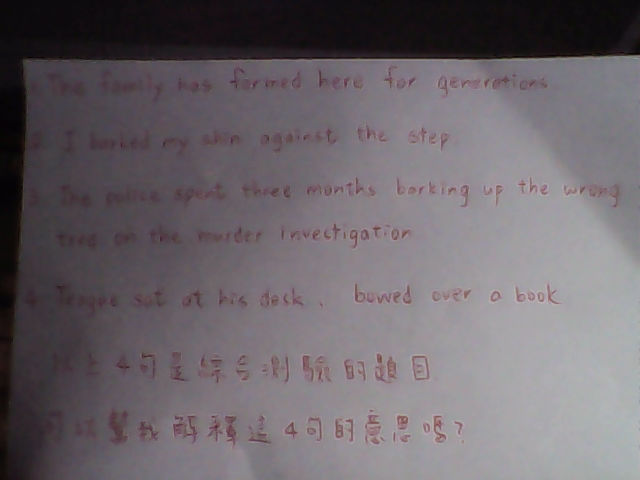 1. The family has farmed here for generations
2. I barked my shin against the step.
3. The police spent three months barking up the wrong
tree on the murder investigation
4. Teague sat at his desk, bowed over a book
以上4句是綜合測驗的題目
可以幫我解釋這4句的意思嗎?